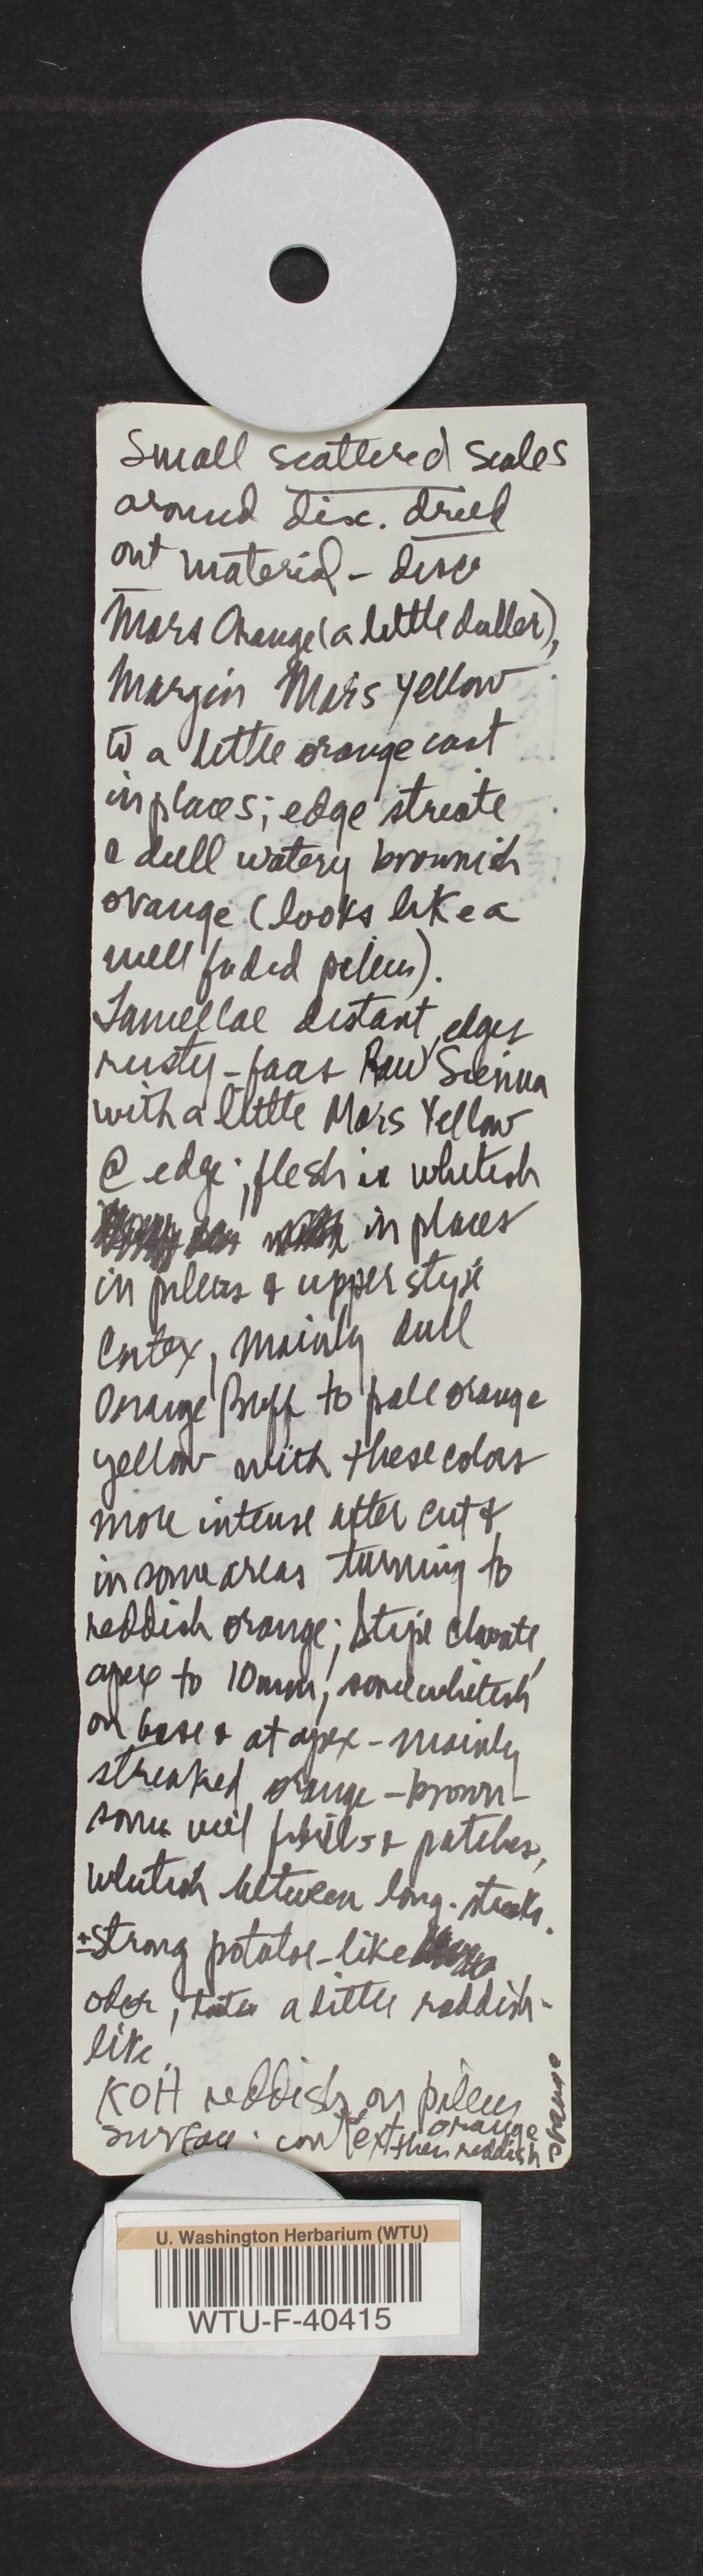 Small scattered scales
around disc. dried
out material - disc
Mars Orange (a little duller),
Margin Mars Yellow
to a little orange cast
in places; edge striate
a dull watery brownish
orange (looks like a
well faded pileus).
Lamellae distant, edges
rusty - faces Raw Sienna
with a little Mars Yellow
@ edge; flesh is whitish
in places
in pileus & upper stipe
Cortex, mainly dull
Orange Buff to pale orange
yellow with these colors
more intense after cut &
in some areas turning to
reddish orange; Stipe clavate,
apex to 10mm, some whitish
on base & at apex - mainly
streaked orange - brown -
some veil fibrils & patches,
whitish between long. streaks.
± strong potatoe-like
odor, taste a little raddish-
like.
KOH reddish on pileus
surface. context orange
then reddish
orange
U. Washington Herbarium (WTU)
WTU-F-40415